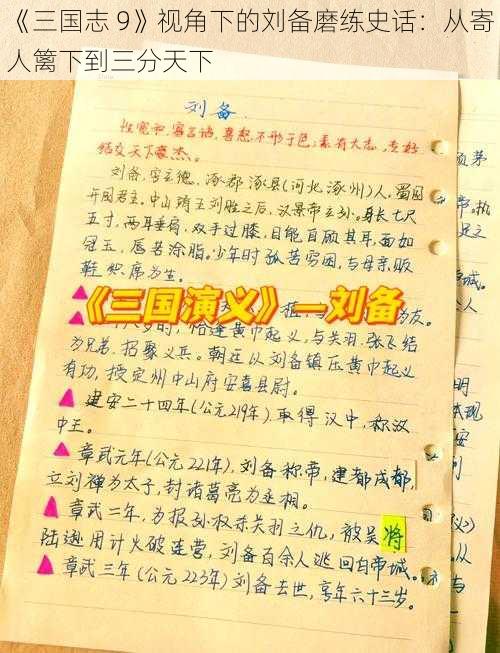 《三国志 9》视角下的刘备磨练史话：从寄
人篱下到三分天下
刘备
性宽和，寡言语，喜怒不形于色；素有大志，专好
结交天下豪杰。
刘备，字玄德，涿郡涿县(河北涿州)人，蜀国
开国君主，中山靖王刘胜之后，汉景帝玄孙。身长七尺
五寸，两耳垂肩，双手过膝，目能自顾其耳，面如
冠玉，唇若涂脂。少年时孤苦穷困，与母亲贩
鞋织席为生。
《三国演义》—刘备
为友。
岁时，恰逢黄巾起义，与关羽.张飞结
为兄弟，招聚义兵。朝廷以刘备镇压黄巾起义
有功，授定州中山府安喜县尉。
建安二十四年(公元219年)取得汉中，称汉
中王。
章武元年(公元221年)，刘备称帝，建都成都，
立刘禅为太子，封诸葛亮为丞相。
章武二年，为报孙权杀关羽之仇，被吴将
陆逊用计火破连营，刘备百余人逃回白帝城。
章武三年(公元223年)刘备去世，享年六十三岁。
页茅
执
足之
城。
明
本现
义》
从
与